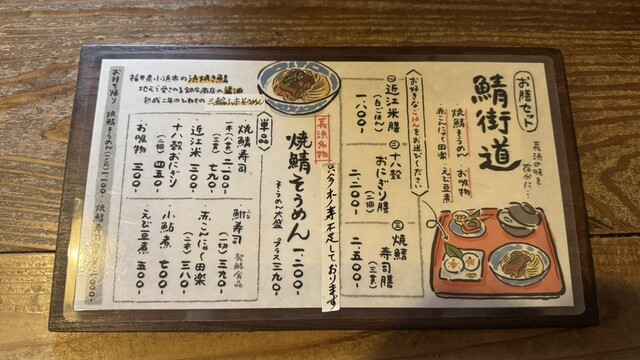 お膳セット
鯖街道
長浜の味を
存分に…
焼鯖そうめん
お吸物
赤こんにゃく田楽
えび豆煮
お好きなごはんをお選びください
① 近江米膳
(白ごはん)
一、八〇〇-
② 十八穀
おにぎり膳
(二個)
二、二〇〇-
③ 焼鯖
寿司膳
(三貫)
二、五〇〇-
福井県小浜市の浜焼き鯖
長浜名物
焼鯖そうめん
一、二〇〇-
そうめん大盛 プラス三九〇-
只今人手不足しております
単品
焼鯖寿司
一本(八貫) 二、一〇〇-
(三貫) 七九〇-
近江米 三〇〇-
十八穀おにぎり
(二個) 四五〇-
お吸物 三〇〇-
鮒寿司 発酵食品
(一切) 三九〇-
赤こんにゃく田楽
(二本) 三八〇-
小鮎煮 七〇〇-
えび豆煮 五〇〇-
お持ち帰り